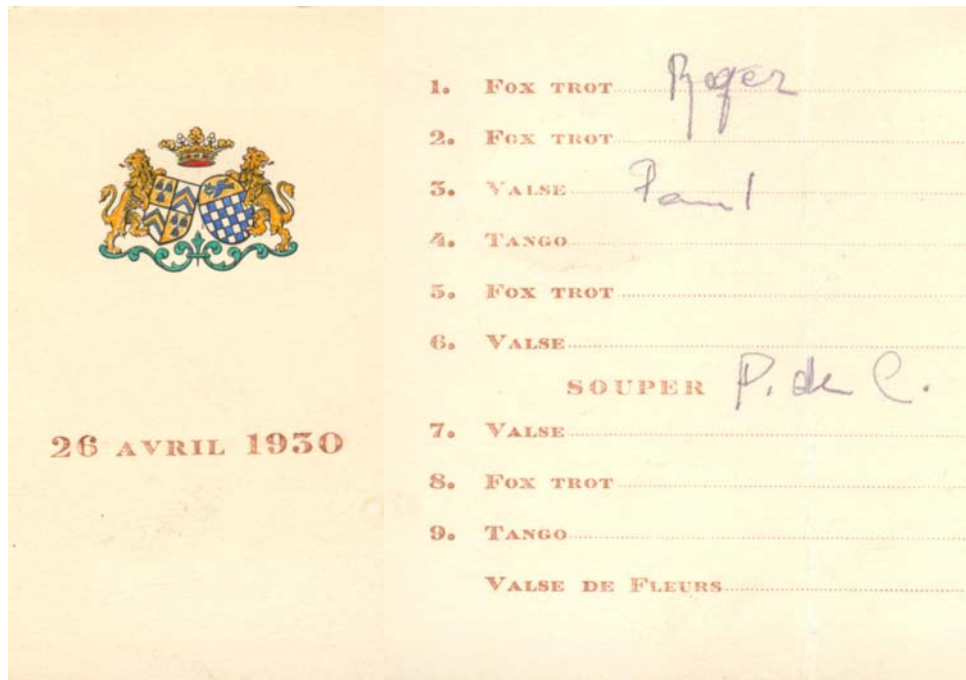 26 AVRIL 1930
1. FOX TROT Roger
2. FOX TROT
3. VALSE Paul
4. TANGO
5. FOX TROT
6. VALSE
SOUPER P. de C.
7. VALSE
8. FOX TROT
9. TANGO
VALSE DE FLEURS